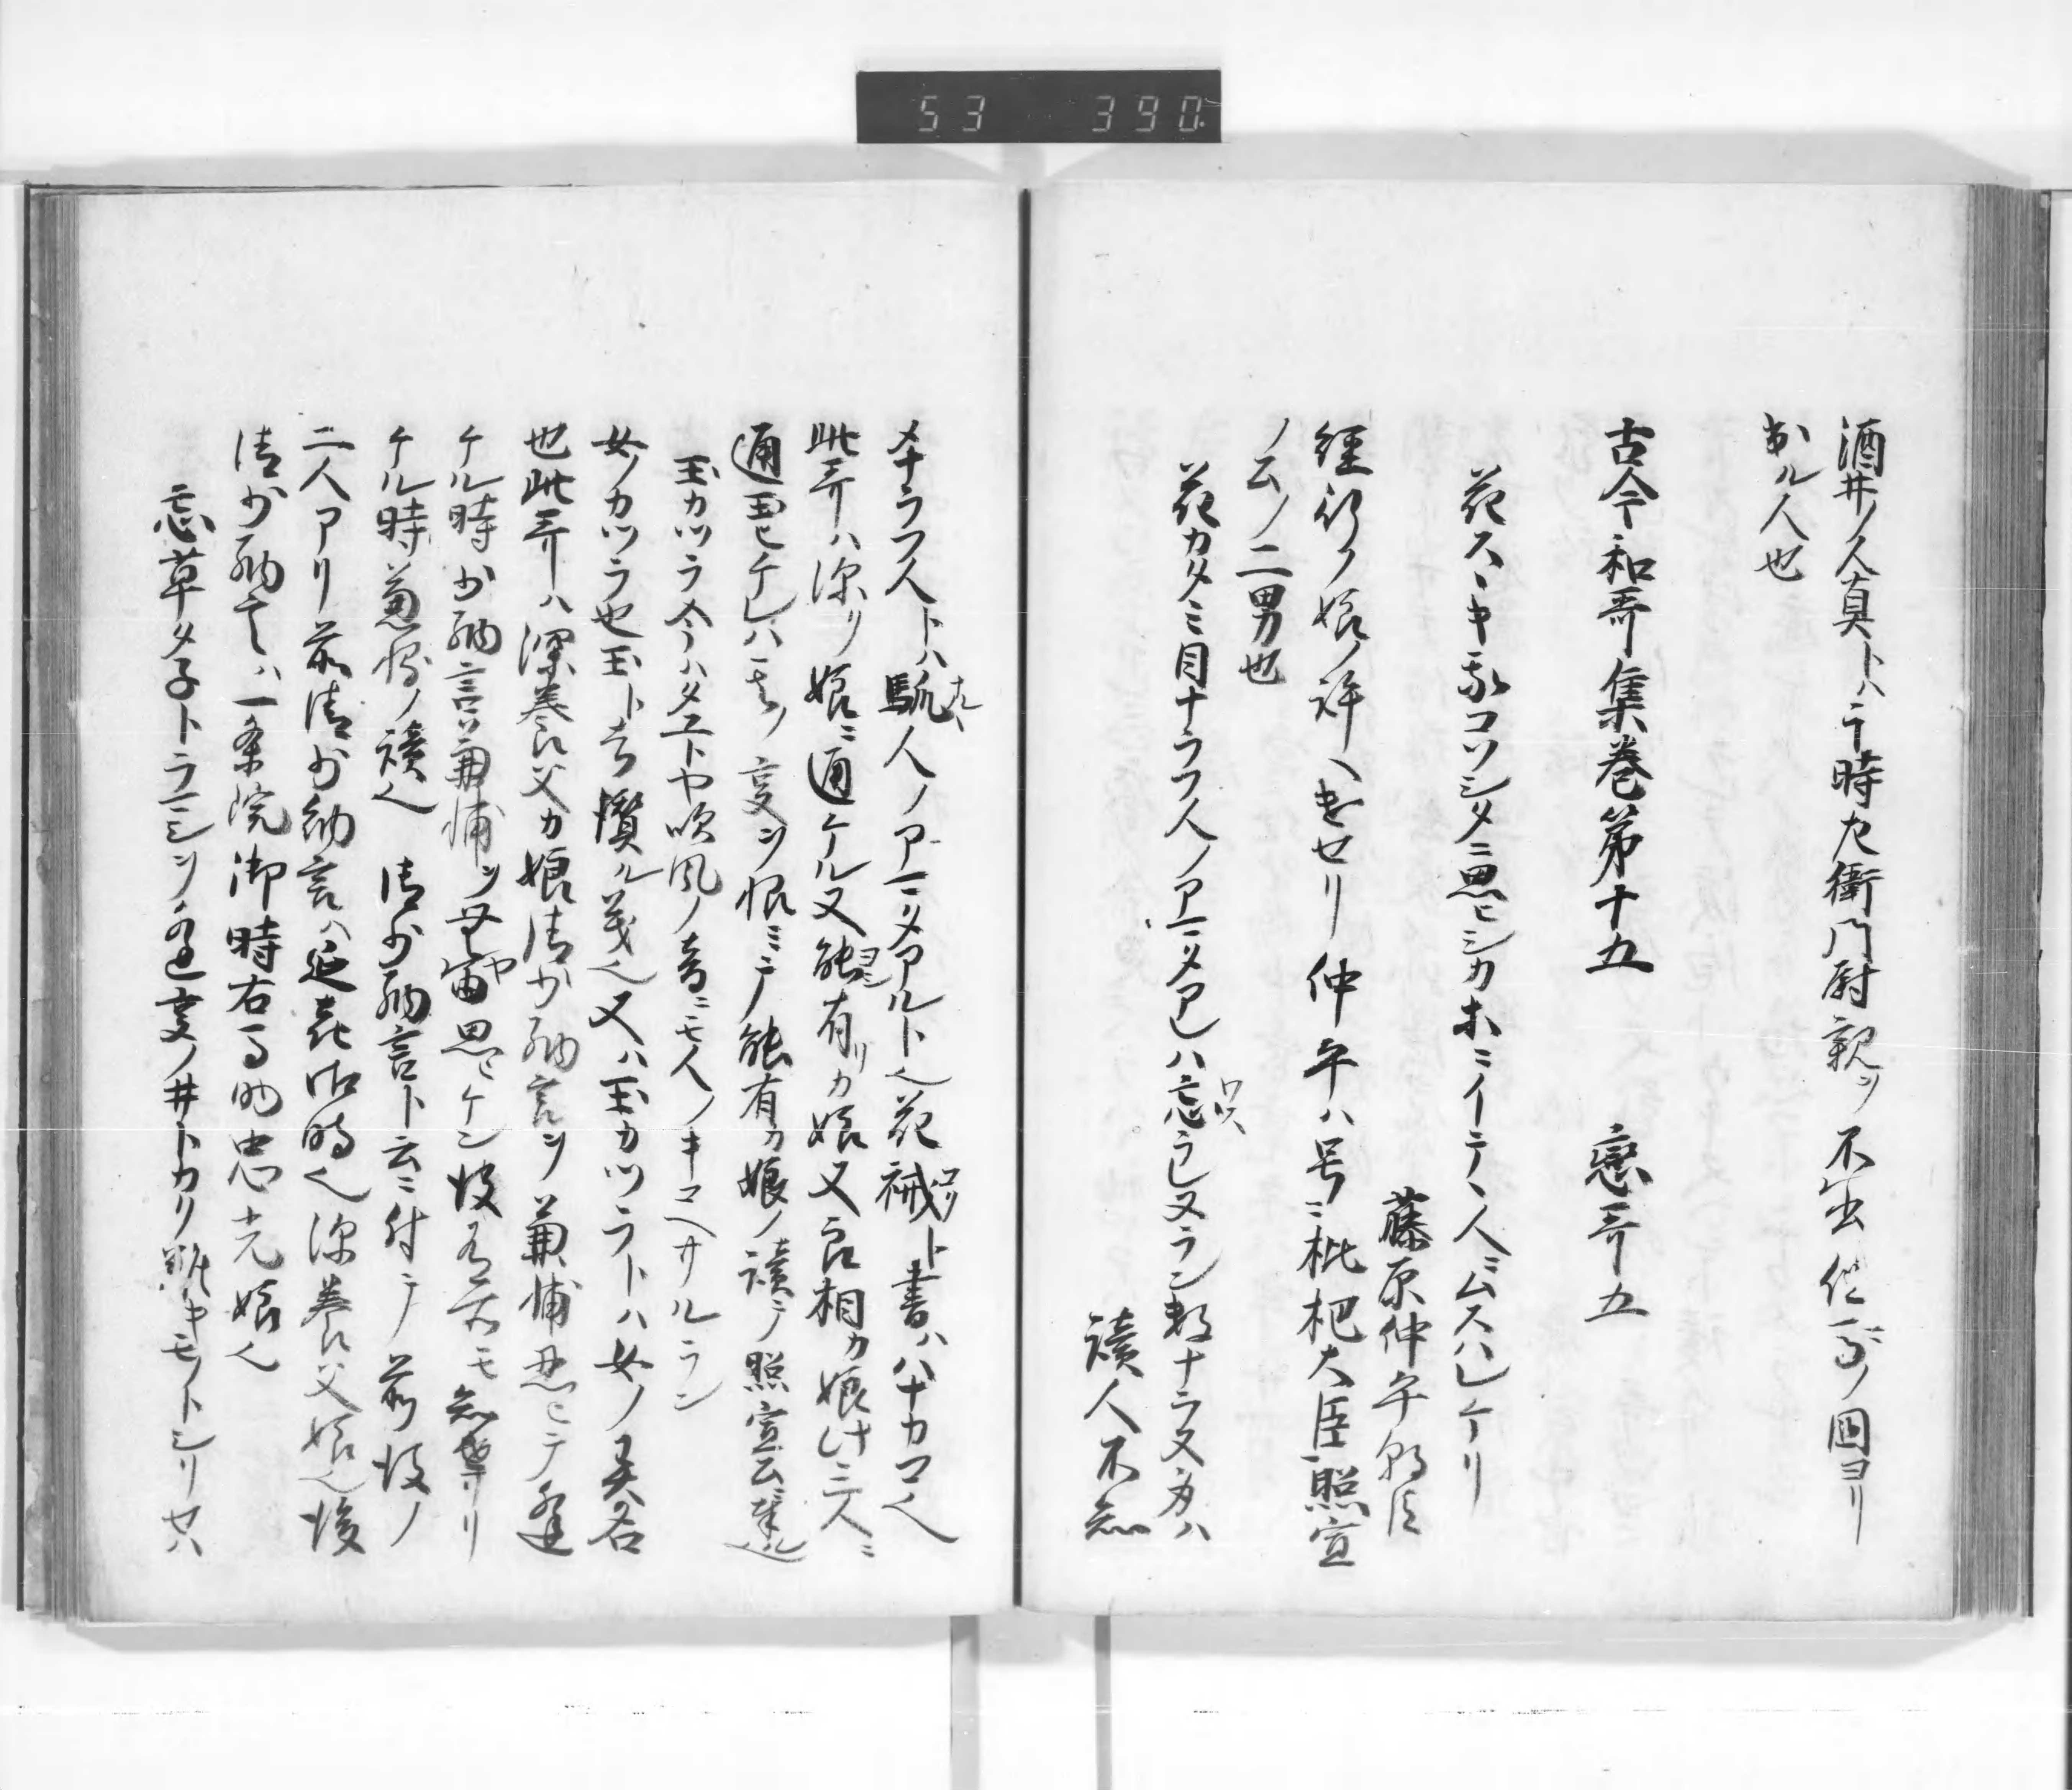 53 390
酒井ノ人真トハ于時左衛門尉親ツ不出但馬ノ国ヨリ
出ル人也
古今和哥集巻第十五 戀哥五
花スヽキ我コソシタニ思ヒシカホニイテヽ人ニムスハレケリ
藤原仲平朝臣
経行ノ娘ノ許ヘ遣セリ仲平ハ号ニ枇杷大臣照宣
ノ公ノ二男也
花カタミ目ナラフ人ノアマタアレハ忘ラレヌラン数ナラヌ身ハ
讀人不知
メナラフ人トハ馴人ノアマタアルト也花械ト書ハハナカコ也
此哥ハ深ノ娘ニ通ケル又能有カ娘又良相カ娘此三人ニ
通玉ヒケレハ其ノ変ヲ恨ミテ能有カ娘ノ讀テ照宣公ニ送
玉カツラ今ハタユトヤ吹風ノ音ニモ人ノキコヘサルラン
女ノカツラ也玉ト云讃ル義也又ハ玉カツラトハ女ノ異名
也此哥ハ深養父カ娘清少納言ヲ兼輔忍ヒテ通
ケル時少納言兼輔ヲ母 思ヒケン後
ケル時 ノ讀也 清少納言ト云ニ付テ前後ノ
二人アリ前清少納言ハ延喜御時也深養父娘也後
清少納言ハ一条院御時右馬助忠光娘也
忘草タ子トラマシヲ逢事ノ井トカリ難キモノトシリセハ